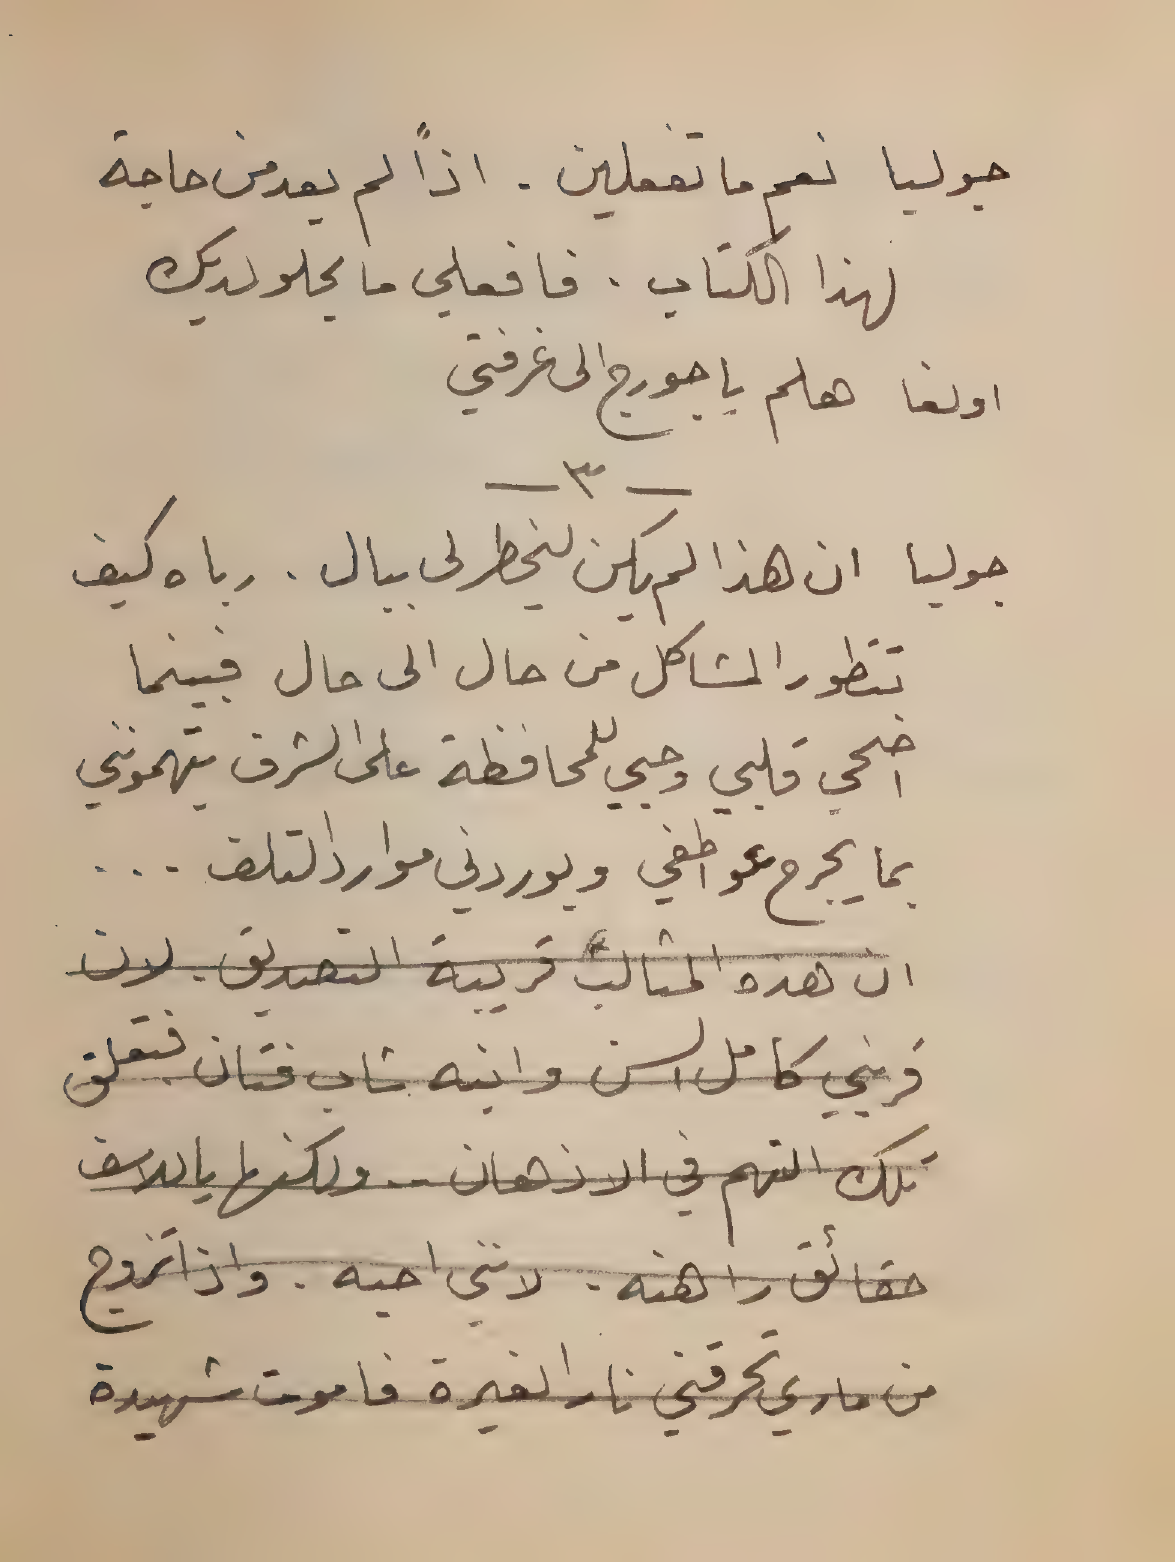 جوليا نعم ما تفعلين . اذاً لم يعد من حاجة
لهذا الكتاب . فافعلي ما يحلو لديك
اولغا هلم يا جورج الى غرفتي
— ٣ —
جوليا ان هذا لم يكن ليخطر لي ببال . رباه كيف
تتطور المشاكل من حال الى حال فبينما
اضحي قلبي وحبي للمحافظة على الشرف يتهمونني
بما يجرح عواطفي ويوردني موارد التلف ...
ان هذه المثالب قريبة التصديق . لان
قريني كامل السن وابنه شاب فتان فتعلق
تلك التهم في الاذهان .. ولكنها يا للاسف
حقائق راهنه . لانني احبه . واذا تزوج
من ماري تحرقني نار الغيرة فاموت شهيدة